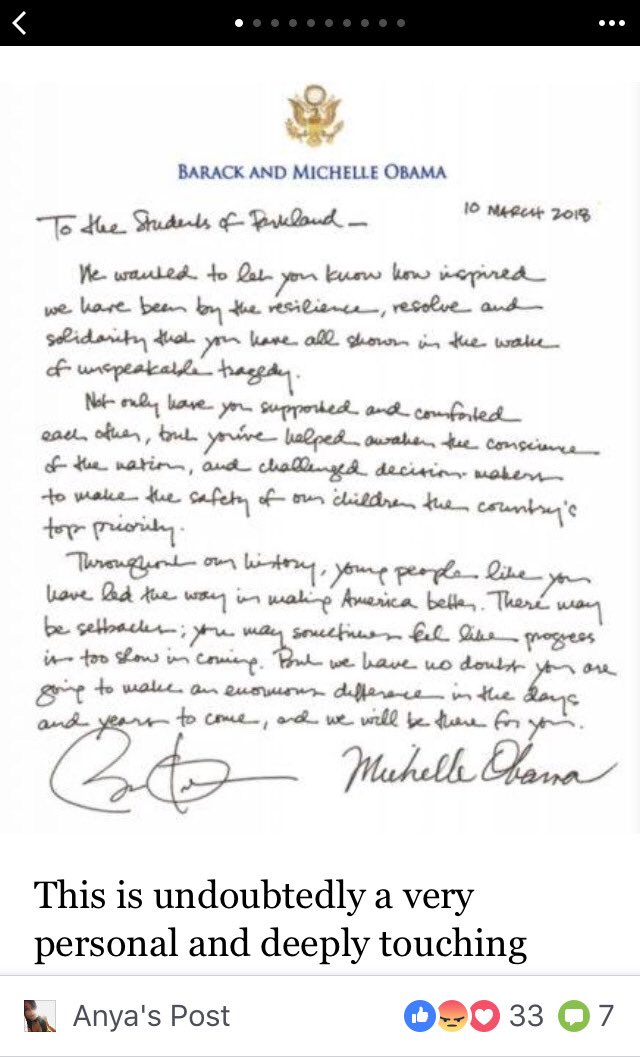 BARACK AND MICHELLE OBAMA
10 MARCH 2018
To the Students of Parkland —
We wanted to let you know how inspired
we have been by the resilience, resolve and
solidarity that you have all shown in the wake
of unspeakable tragedy.
Not only have you supported and comforted
each other, but you've helped awaken the conscience
of the nation, and challenged decision-makers
to make the safety of our children the country's
top priority.
Throughout our history, young people like you
have led the way in making America better. There may
be setbacks; you may sometimes feel like progress
is too slow in coming. But we have no doubt you are
going to make an enormous difference in the days
and years to come, and we will be there for you.
Michelle Obama
This is undoubtedly a very
personal and deeply touching
Anya's Post
33
7